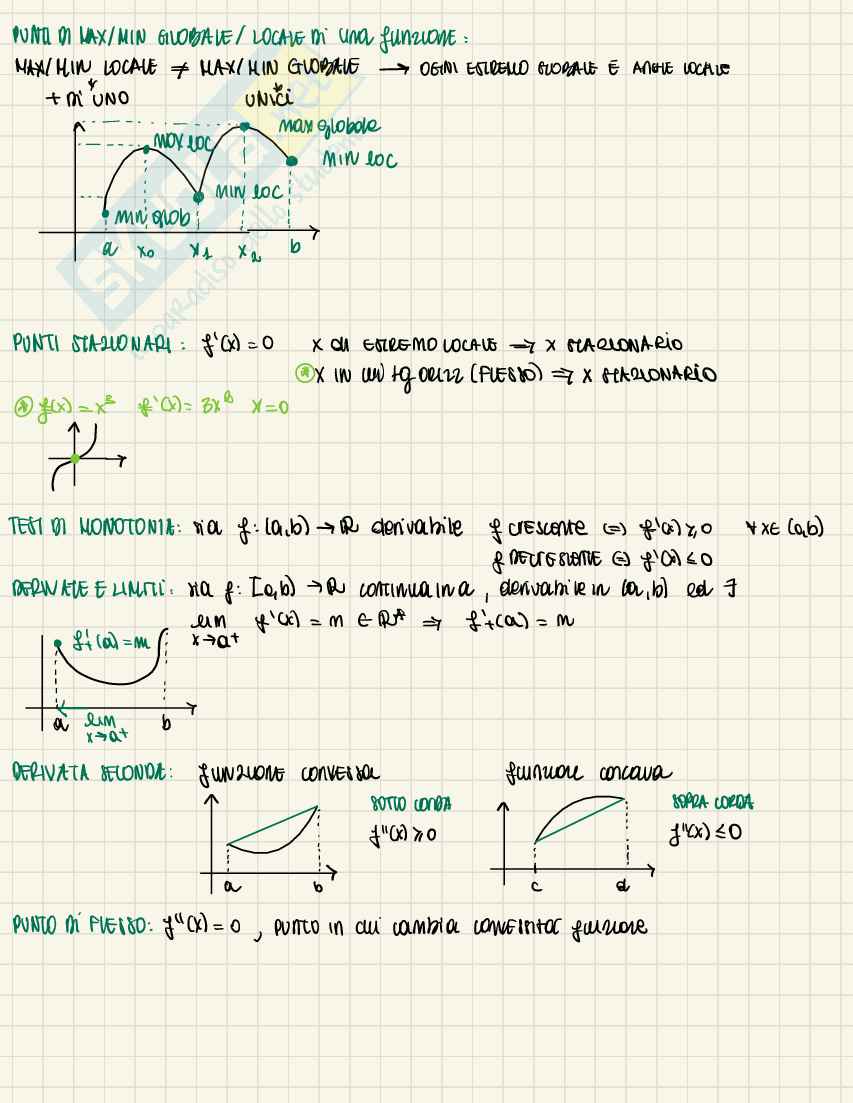 PUNTI DI MAX/MIN GLOBALE/LOCALE DI una funzione:
MAX/MIN LOCALE ≠ MAX/MIN GLOBALE → OGNI ESTREMO GLOBALE È ANCHE LOCALE
+ DI UNO UNICI
max globale
max loc
min loc
min loc
min glob
a x₀ x₁ x₂ b
PUNTI STAZIONARI: f'(x) = 0 x di ESTREMO LOCALE ⇒ x STAZIONARIO
* x in cui tg orizz (FLESSO) ⇒ x STAZIONARIO
* f(x) = x³ f'(x) = 3x² x=0
TEST DI MONOTONIA: sia f: (a,b) → ℝ derivabile f CRESCENTE ⇔ f'(x) ≥ 0 ∀x∈(a,b)
f DECRESCENTE ⇔ f'(x) ≤ 0
DERIVATE E LIMITI: sia f: [a,b) → ℝ continua in a, derivabile in (a,b) ed ∃
lim x→a⁺ f'(x) = m ∈ ℝ* ⇒ f'₊(a) = m
f'₊(a) = m
a lim x→a⁺ b
DERIVATA SECONDA: funzione convessa funzione concava
SOTTO CORDA SOPRA CORDA
f''(x) ≥ 0 f''(x) ≤ 0
a b c d
PUNTO DI FLESSO: f''(x) = 0, punto in cui cambia convessità funzione
SKUOLA.net
il paradiso dello studente